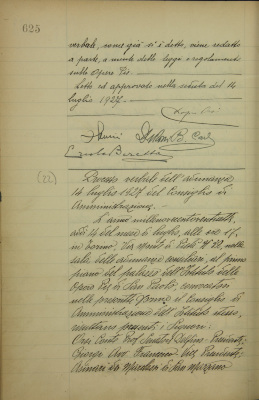 625
verbale, come già si è detto, viene redatto
a parte, a mente della legge e regolamenti
sulle Opere Pie.
Letto ed approvato nella seduta del 14
luglio 1927.
(22) Processo verbale dell'adunanza
14 luglio 1927 del Consiglio di
Amministrazione.
L'anno millenovecentoventisette,
addì 14 del mese di luglio, alle ore 17,
in Torino, Via Monte di Pietà N° 20, nella
sala delle adunanze consiliari, al primo
piano del palazzo dell'Istituto delle
Opere Pie di San Paolo, convocatosi
nelle prescritte forme il Consiglio di
Amministrazione dell'Istituto stesso,
risultarono presenti i Signori:
Orsi Conte Prof. Delfino - Presidente
Avv. Francesco Vice Presidente
di San Marzano